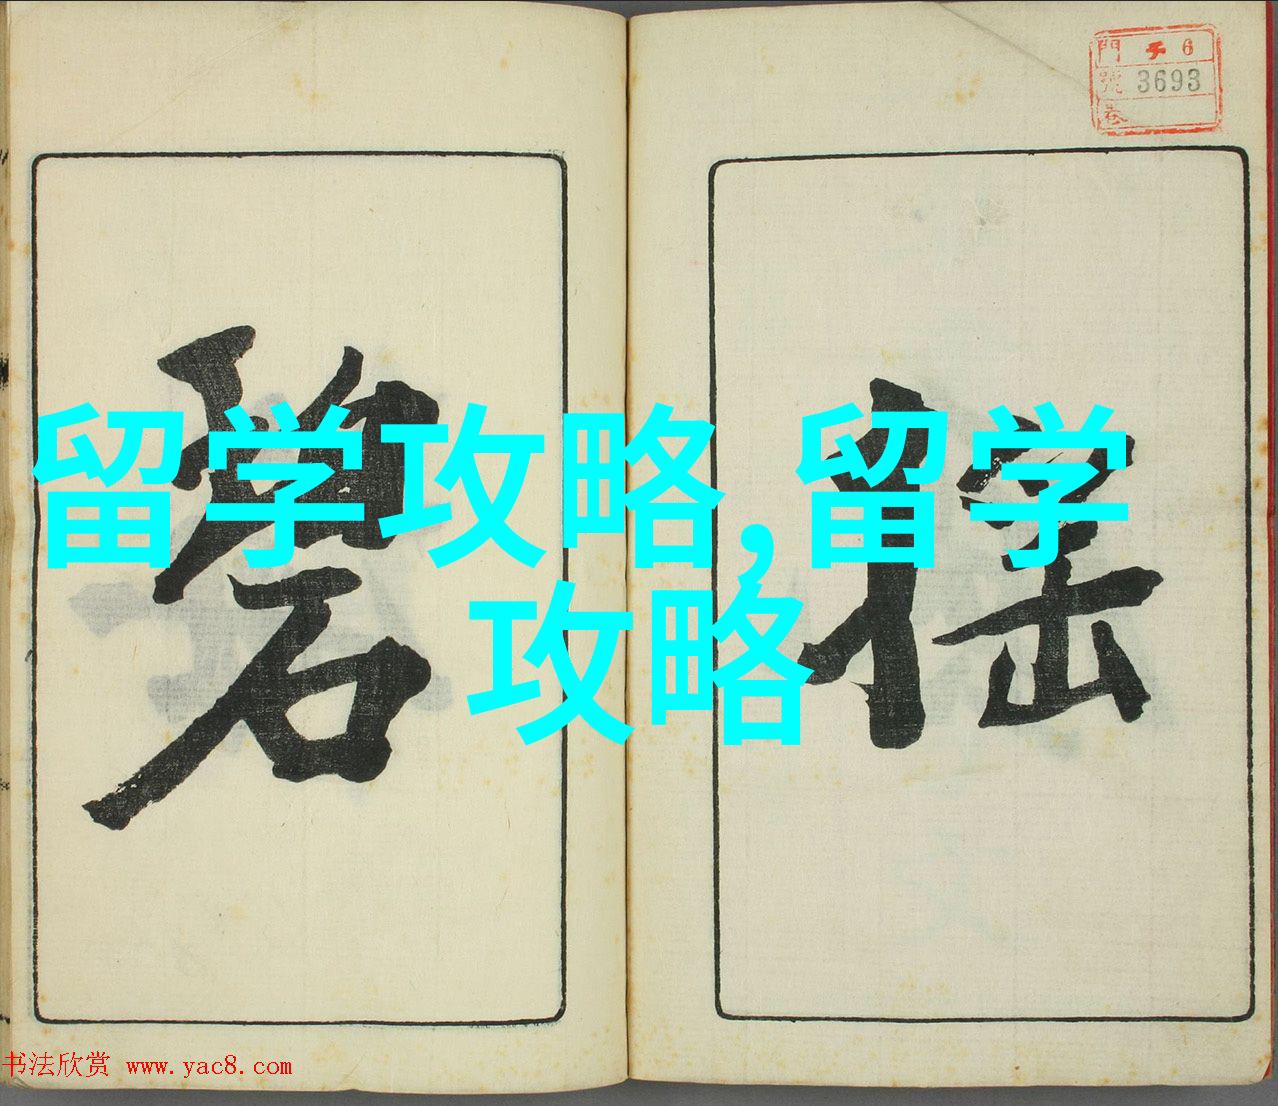 門 6
號 3693
卷
搖
碧
留学攻略,留学
攻略
书法欣赏 www.yac8.com